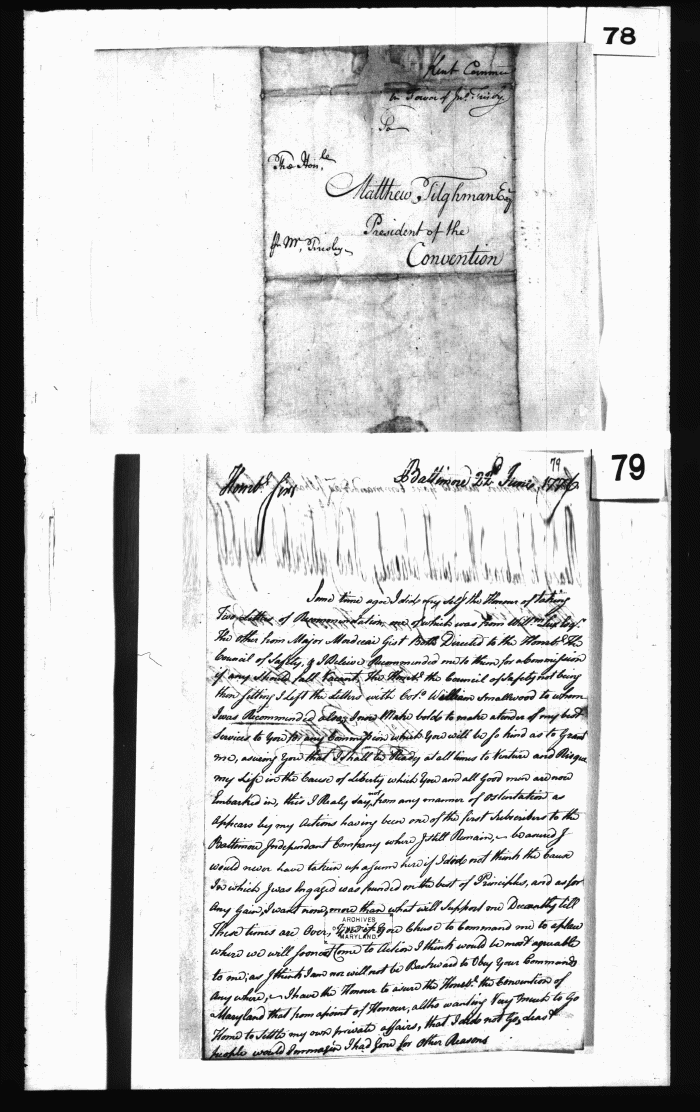 78
Kent Comm
in favor of
To
The Hon.le
Matthew Tilghman Esqr
President of the
pr Mr. Frisby
Convention
79
79
Baltimore 22d June 1776
Honble Sirs
Some time ago I did my self the Honour of taking
Two Letters of Recommendation one of which was from
The other from Major Mordecai Gist Both Directed to the Honble. The
Council of Safety, & I Beleive Recommended me to them for a Commission
if any Should fall Vacant, The Honble. the Council of Safety not being
then sitting I Left the Letters with Colo. William Smallwood to whom
I was Recommended also, I now Make bold to make a tender of my best
Services to You for any Commission which You will be so kind as to Grant
me, asuring You that I shall be Ready at all times to Venture and Risque
my Life in the Cause of Liberty which You and all Good men are now
Embarked in, this I Realy say, not from any manner of Ostentation as
Appears by my Actions having been one of the first Subscribers to the
Baltimore Independant Company where I still Remain, be asured I
would never have taken up a Gun here if I did not think the Cause
In which I was Engaged was founded on the best of Principles, and as for
Any Gain, I want none, more than what will Support me Decently till
These times are Over, You Chuse to Command me to a place
ARCHIVES
OF
MARYLAND
where we will soonest Come to Action I think would be most agreable
to me; as I think I am nor will not be Backward to Obey Your Commands
Any where, I have the Honour to asure the Honble. the Convention of
Maryland that from a point of Honour, altho wanting Very much to Go
Home to Settle my own private affairs, that I did not Go, least
people would Immagin I had Gone for Other Reasons